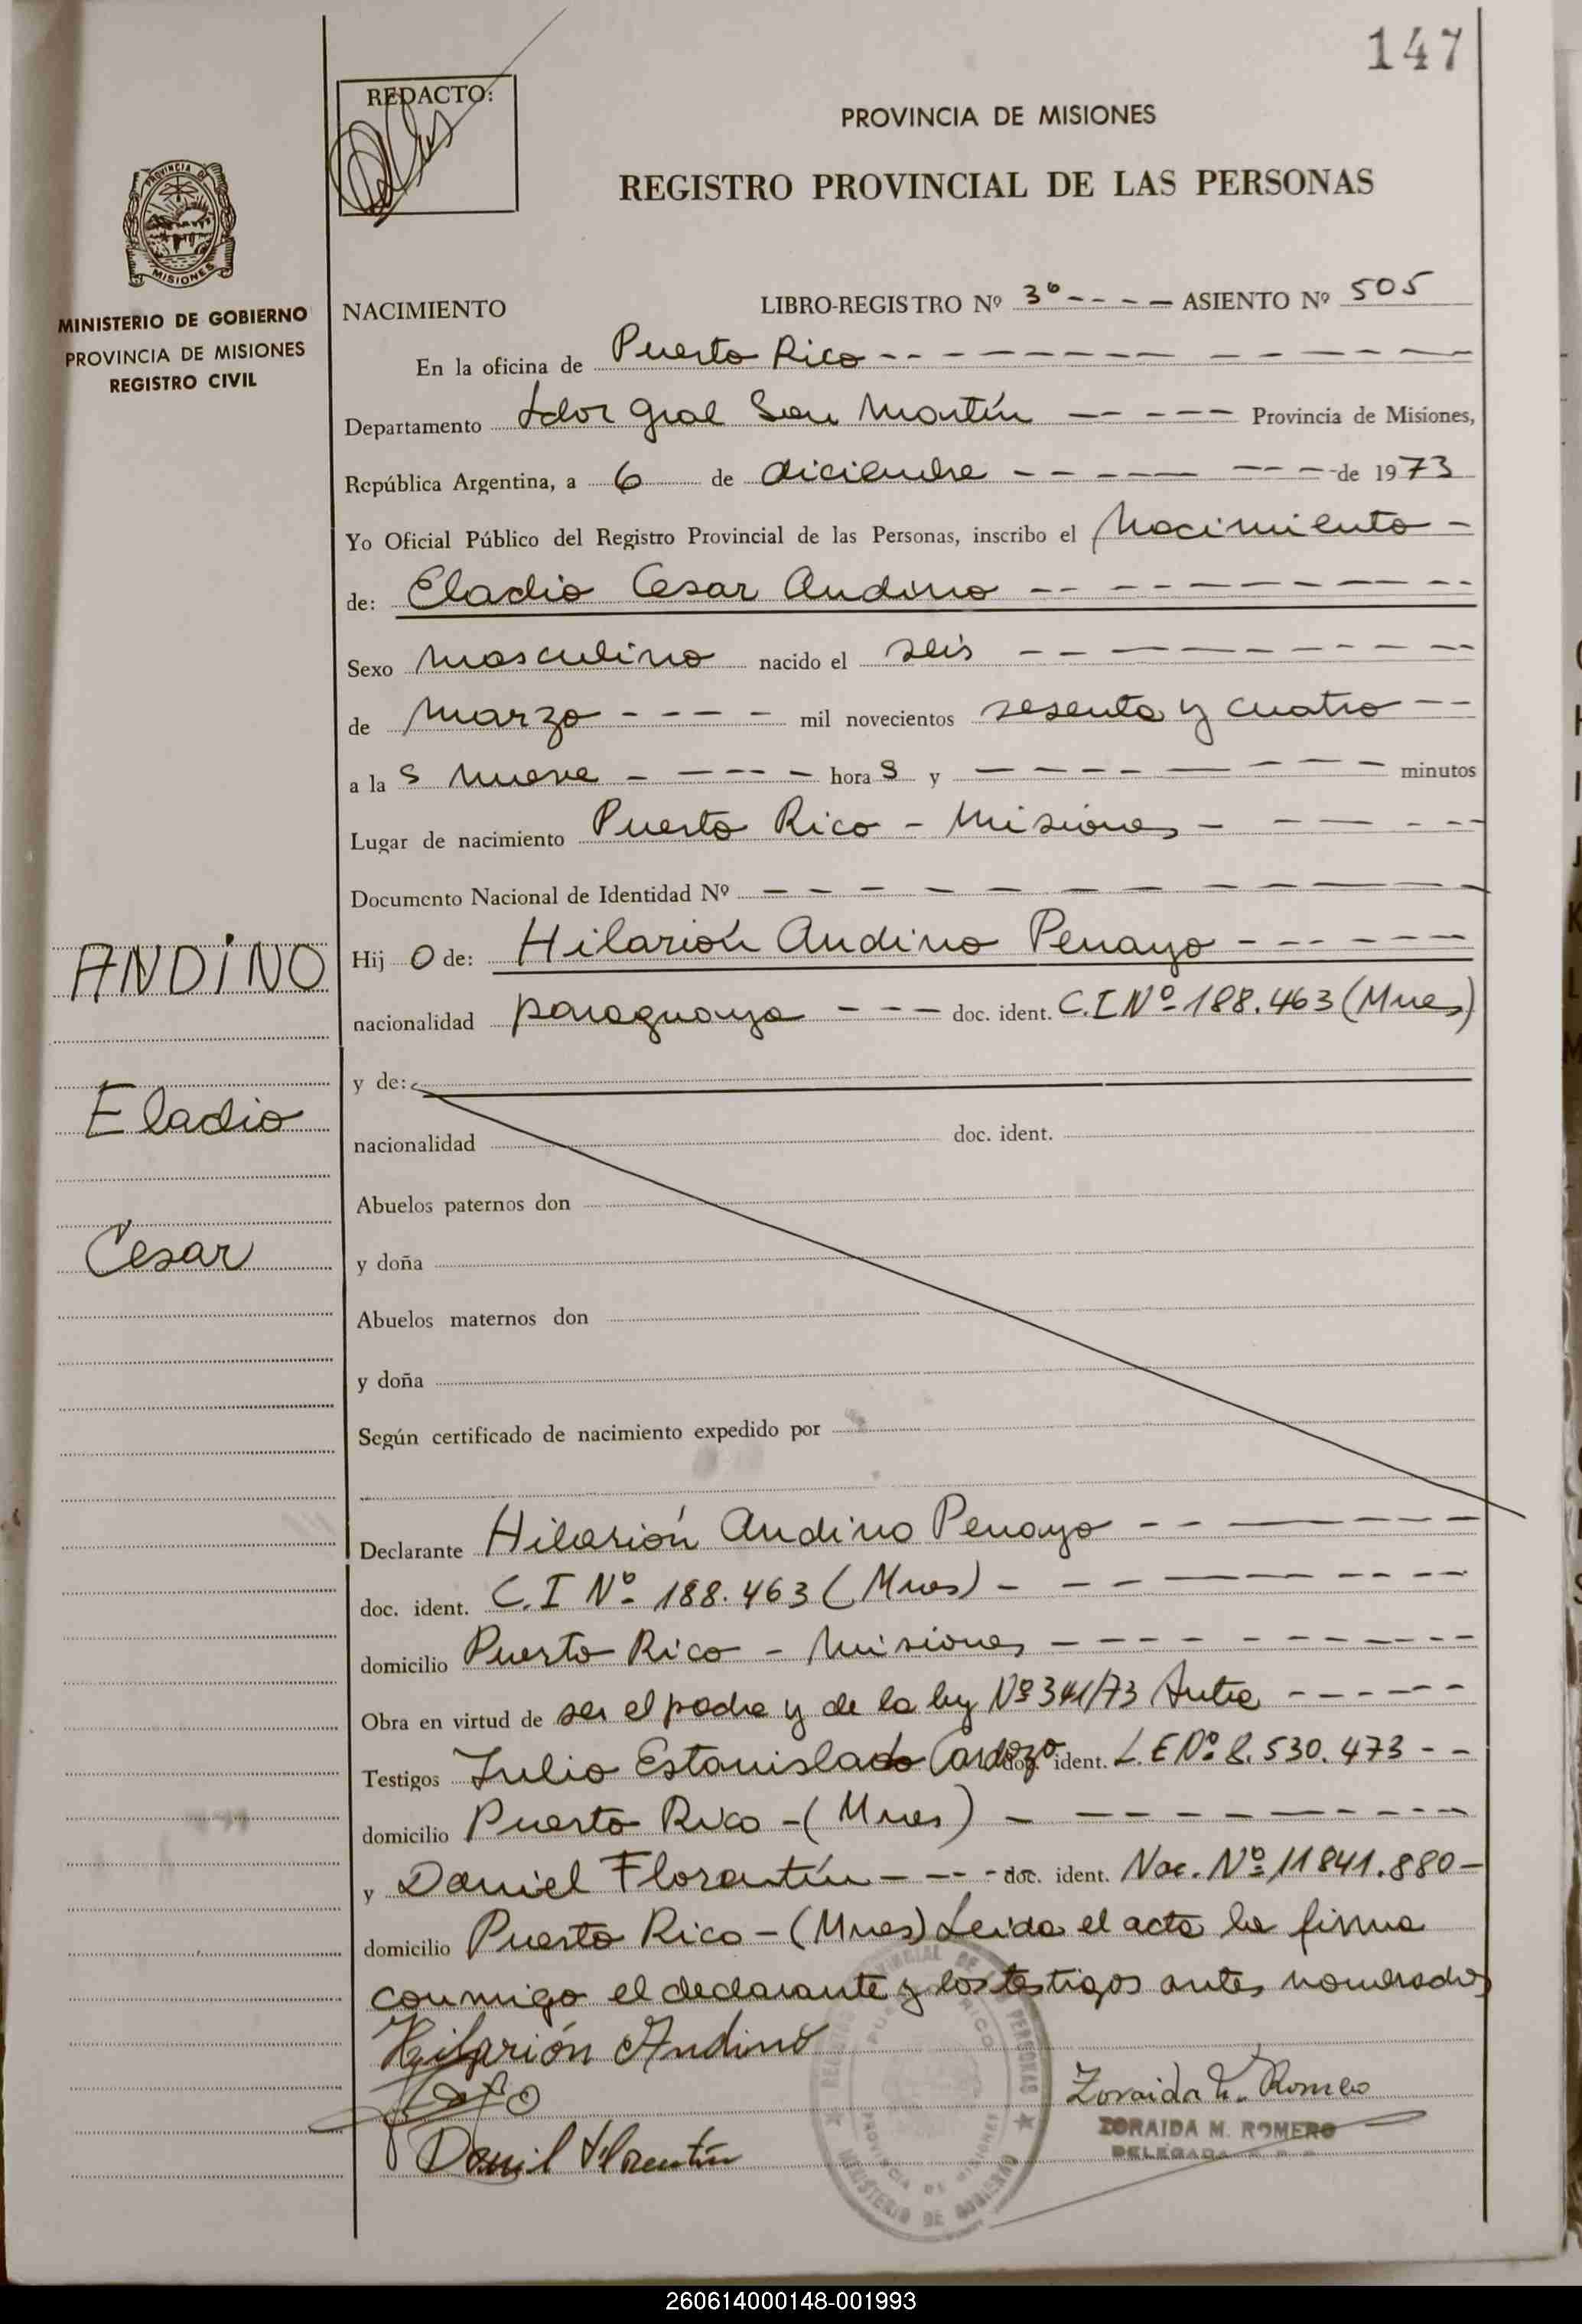 147
REDACTO:
PROVINCIA DE MISIONES
REGISTRO PROVINCIAL DE LAS PERSONAS
PROVINCIA DE
MISIONES
MINISTERIO DE GOBIERNO
PROVINCIA DE MISIONES
REGISTRO CIVIL
NACIMIENTO LIBRO-REGISTRO Nº 3º - - - - ASIENTO Nº 505
En la oficina de Puerto Rico
Departamento Ldor Gral San Martín Provincia de Misiones,
República Argentina, a 6 de diciembre de 1973
Yo Oficial Público del Registro Provincial de las Personas, inscribo el Nacimiento -
de: Eladio Cesar Andino
Sexo masculino nacido el seis
de marzo mil novecientos sesenta y cuatro
a la s nueve hora s y minutos
Lugar de nacimiento Puerto Rico - Misiones
Documento Nacional de Identidad Nº
ANDINO
Hij o de: Hilarión Andino Penayo
nacionalidad paraguaya doc. ident. C.I Nº 188.463 (Mnes)
y de:
Eladio
nacionalidad doc. ident.
Abuelos paternos don
Cesar
y doña
Abuelos maternos don
y doña
Según certificado de nacimiento expedido por
Declarante Hilarión Andino Penayo
doc. ident. C.I Nº 188.463 (Mnes)
domicilio Puerto Rico - Misiones
Obra en virtud de ser el padre y de la ley Nº 341/73
Testigos Julio Estanislado Cardozo doc. ident. L.E Nº 8.530.473
domicilio Puerto Rico - (Mnes)
y Daniel Florentín doc. ident. Nac. Nº 11841.880 -
domicilio Puerto Rico - (Mnes) Leida el acta la firma
conmigo el declarante y los testigos antes nombrados
Hilarión Andino
Zoraida M. Romero
ZORAIDA M. ROMERO
DELEGADA
Daniel Florentín
PROVINCIAL DE LAS PERSONAS
PUERTO RICO
PROVINCIA DE MISIONES
MINISTERIO DE GOBIERNO
260614000148-001993